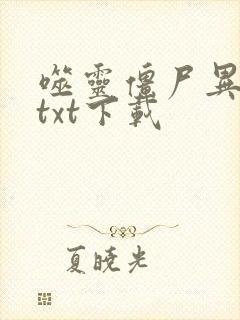 噬靈僵尸異
txt下載
夏曉光